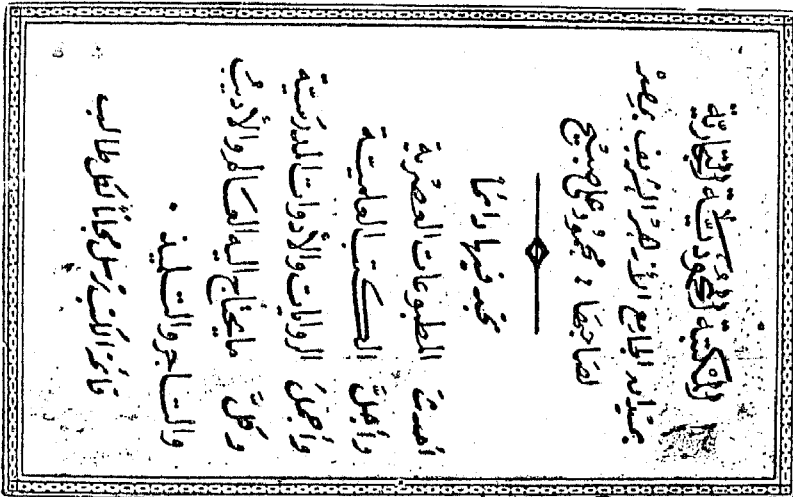 المكتبة المحمودية التجارية
بميدان الجامع الأزهر الشريف بمصر
لصاحبها : محمود علي صبيح
تجد فيها دائما
أحدث المطبوعات العصرية
وأجل الكتب العلمية
وأجمل الروايات والأدوات المدرسية
وكل مايحتاج اليه العالم والأديب
والتاجر والتلميذ .
قائمة الكتب ترسل مجانا لكل طالب